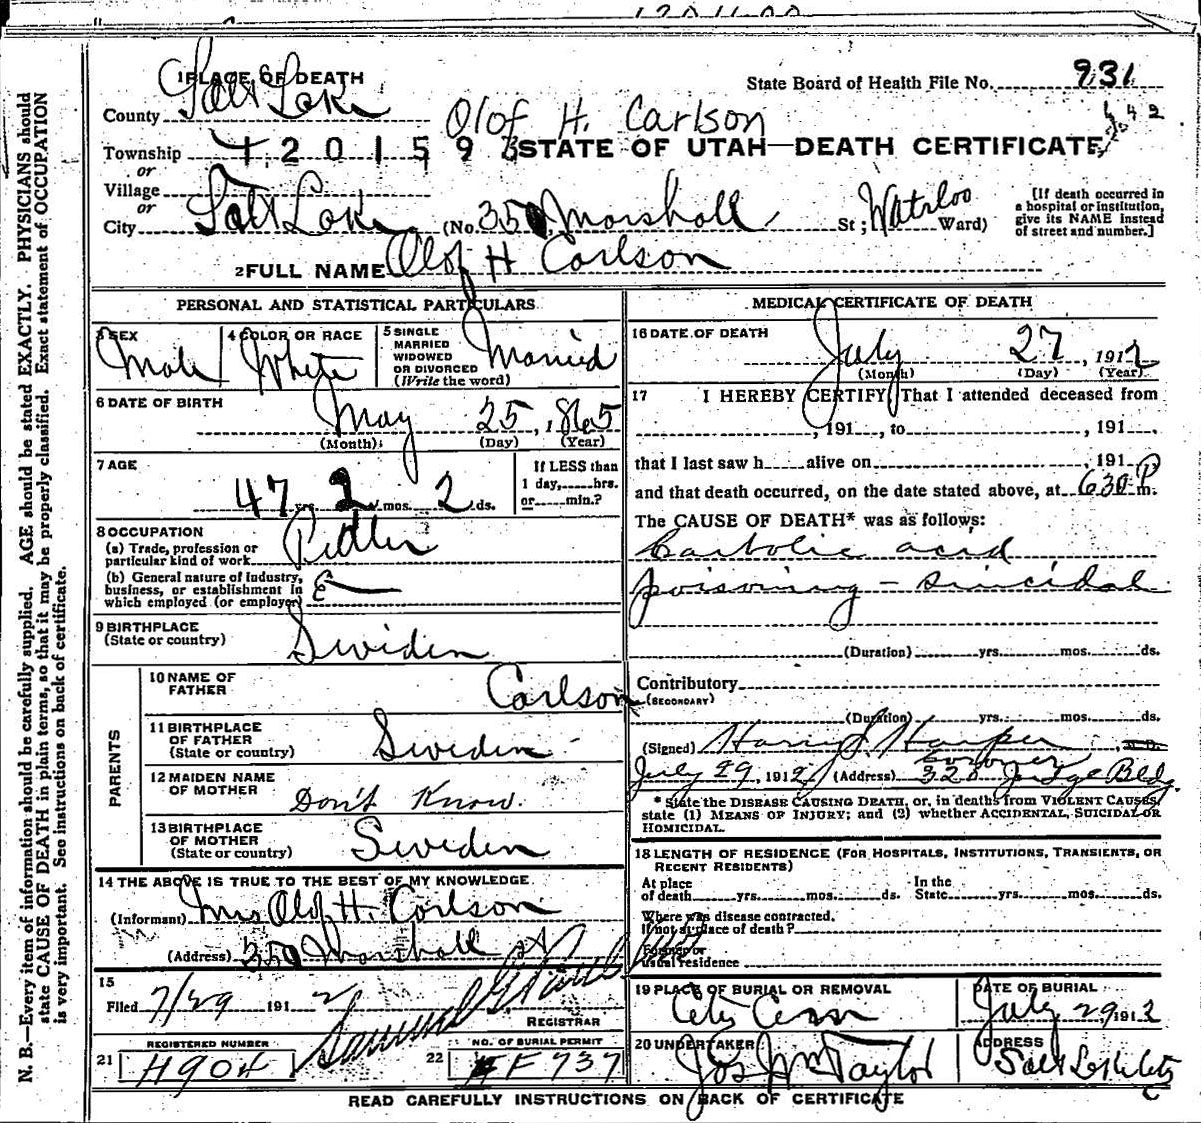 1 PLACE OF DEATH
State Board of Health File No. 931
County Salt Lake
Olof H. Carlson
Township 4 2 0 1 5 9 3
STATE OF UTAH—DEATH CERTIFICATE
or
Village
or
City Salt Lake (No. 350 Marshall St; Waterloo Ward)
[If death occurred in
a hospital or institution,
give its NAME instead
of street and number.]
2 FULL NAME Olof H Carlson
PERSONAL AND STATISTICAL PARTICULARS
3 SEX Male
4 COLOR OR RACE White
5 SINGLE
MARRIED
WIDOWED
OR DIVORCED
(Write the word) Married
6 DATE OF BIRTH May 25, 1865
(Month) (Day) (Year)
7 AGE 47 yrs. 2 mos. 2 ds.
If LESS than
1 day, hrs.
or min.?
8 OCCUPATION
(a) Trade, profession or
particular kind of work Pedler
(b) General nature of industry,
business, or establishment in
which employed (or employer)
9 BIRTHPLACE
(State or country) Sweden
PARENTS
10 NAME OF
FATHER Carlson
11 BIRTHPLACE
OF FATHER
(State or country) Sweden
12 MAIDEN NAME
OF MOTHER Don't Know.
13 BIRTHPLACE
OF MOTHER
(State or country) Sweden
14 THE ABOVE IS TRUE TO THE BEST OF MY KNOWLEDGE
(Informant) Mrs Olof H. Carlson
(Address) 350 Marshall St
15
Filed 7/29 1912
REGISTRAR
REGISTERED NUMBER
21 H904
NO. OF BURIAL PERMIT
22 F737
MEDICAL CERTIFICATE OF DEATH
16 DATE OF DEATH July 27, 1912
(Month) (Day) (Year)
17 I HEREBY CERTIFY, That I attended deceased from
, 191 , to , 191 ,
that I last saw h alive on , 191
and that death occurred, on the date stated above, at 630 P m.
The CAUSE OF DEATH* was as follows:
Carbolic acid
poisoning - suicidal
(Duration) yrs. mos. ds.
Contributory
(SECONDARY)
(Duration) yrs. mos. ds.
(Signed) Harry S Harper M. D.
Coroner
July 29, 1912 (Address) 320 Judge Bldg
* State the DISEASE CAUSING DEATH, or, in deaths from VIOLENT CAUSES,
state (1) MEANS OF INJURY; and (2) whether ACCIDENTAL, SUICIDAL OR
HOMICIDAL.
18 LENGTH OF RESIDENCE (FOR HOSPITALS, INSTITUTIONS, TRANSIENTS, OR
RECENT RESIDENTS)
At place
of death yrs. mos. ds.
In the
State yrs. mos. ds.
Where was disease contracted,
if not at place of death?
Former or
usual residence
19 PLACE OF BURIAL OR REMOVAL
City Cem
DATE OF BURIAL
July 29 1912
20 UNDERTAKER
Jos Wm Taylor
ADDRESS
Salt Lake City
READ CAREFULLY INSTRUCTIONS ON BACK OF CERTIFICATE
N. B.—Every item of information should be carefully supplied. AGE should be stated EXACTLY. PHYSICIANS should
state CAUSE OF DEATH in plain terms, so that it may be properly classified. Exact statement of OCCUPATION
is very important. See instructions on back of certificate.